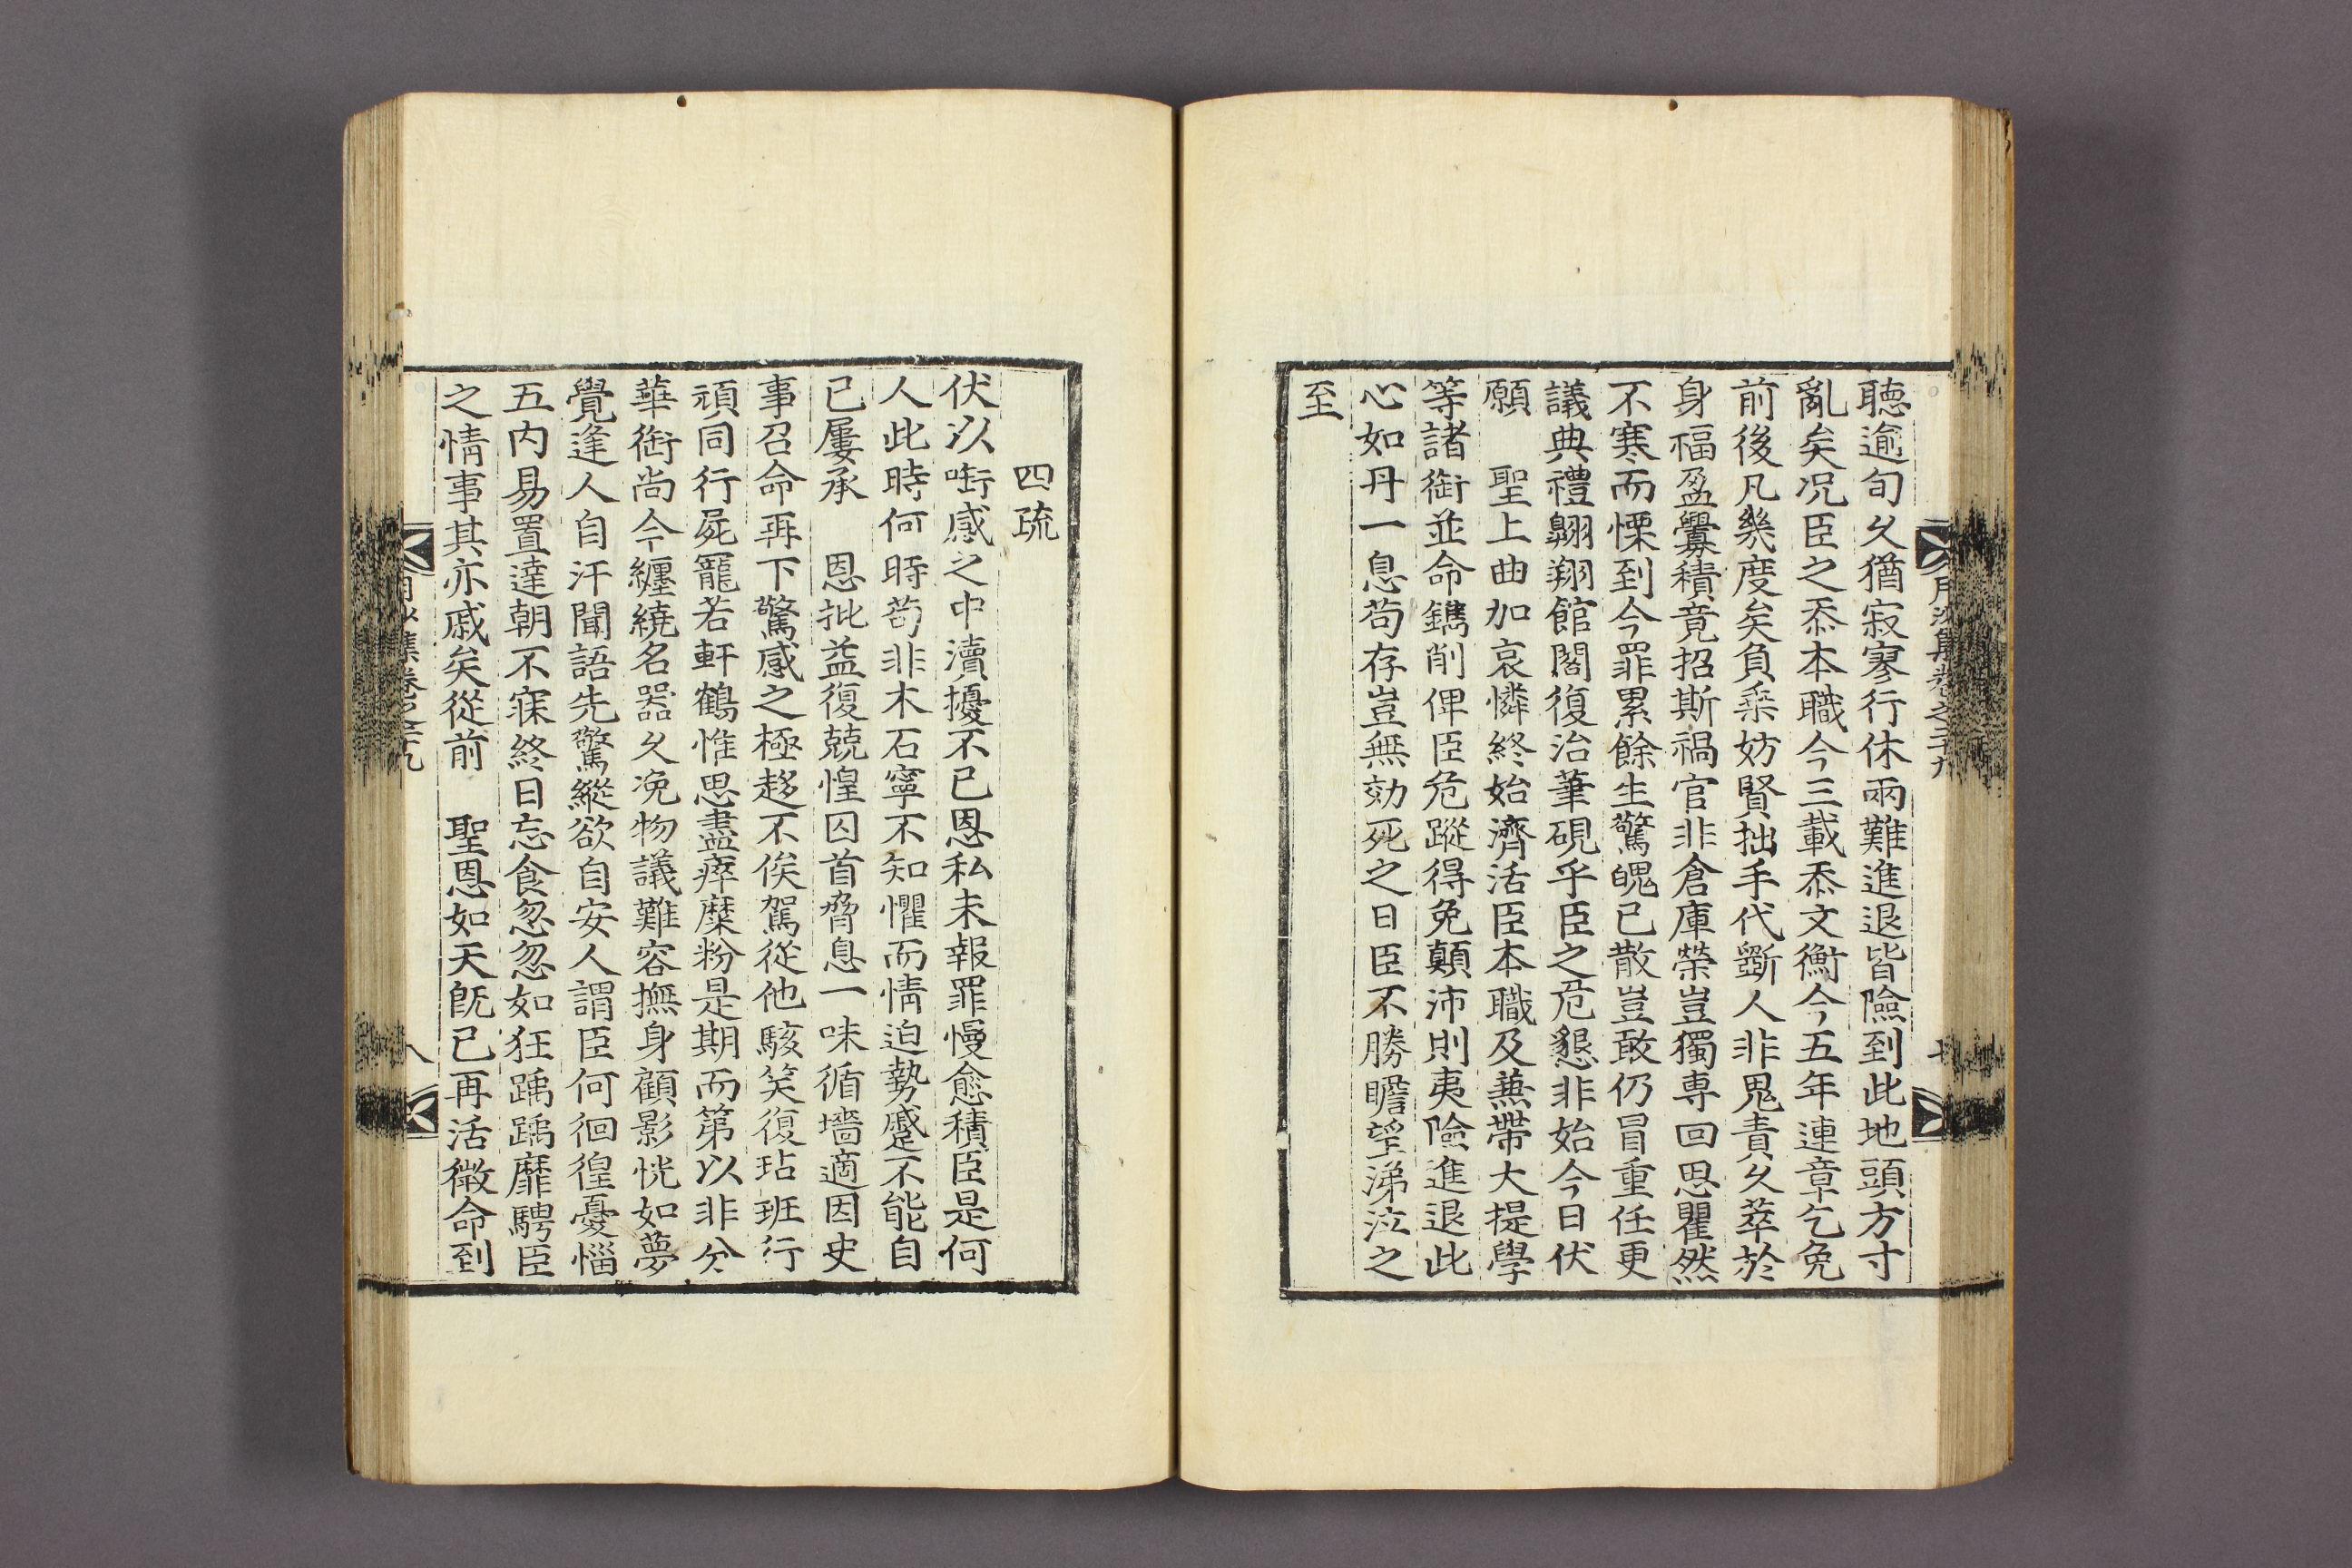 聽逾旬久猶寂寥行休兩難進退皆險到此地頭方寸
亂矣况臣之忝本職今三載忝文衡今五年連章乞免
前後凡幾度矣負乘妨賢拙手代斲人非鬼責久萃於
身福盈釁積竟招斯禍官非倉庫榮豈獨專回思瞿然
不寒而慄到今罪累餘生驚魄已散豈敢仍冒重任更
議典禮翺翔館閣復治筆硯乎臣之危懇非始今日伏
願　聖上曲加哀憐終始濟活臣本職及兼帶大提學
等諸銜並命鐫削俾臣危蹤得免顚沛則夷險進退此
心如丹一息苟存豈無効死之日臣不勝瞻望涕泣之
至
月沙集卷之二十九
七
四疏
伏以銜感之中瀆擾不已恩私未報罪慢愈積臣是何
人此時何時苟非木石寧不知懼而情迫勢蹙不能自
已屢承　恩批益復兢惶囚首脅息一味循墻適因史
事召命再下驚感之極趍不俟駕從他駭笑復玷班行
頑同行屍寵若軒鶴惟思盡瘁糜粉是期而第以非分
華銜尚今纏繞名器久浼物議難容撫身顧影恍如夢
覺逢人自汗聞語先驚縱欲自安人謂臣何徊徨憂惱
五内易置達朝不寐終日忘食忽忽如狂踽踽靡騁臣
之情事其亦戚矣從前　聖恩如天旣已再活微命到
月沙集卷之二十九
八